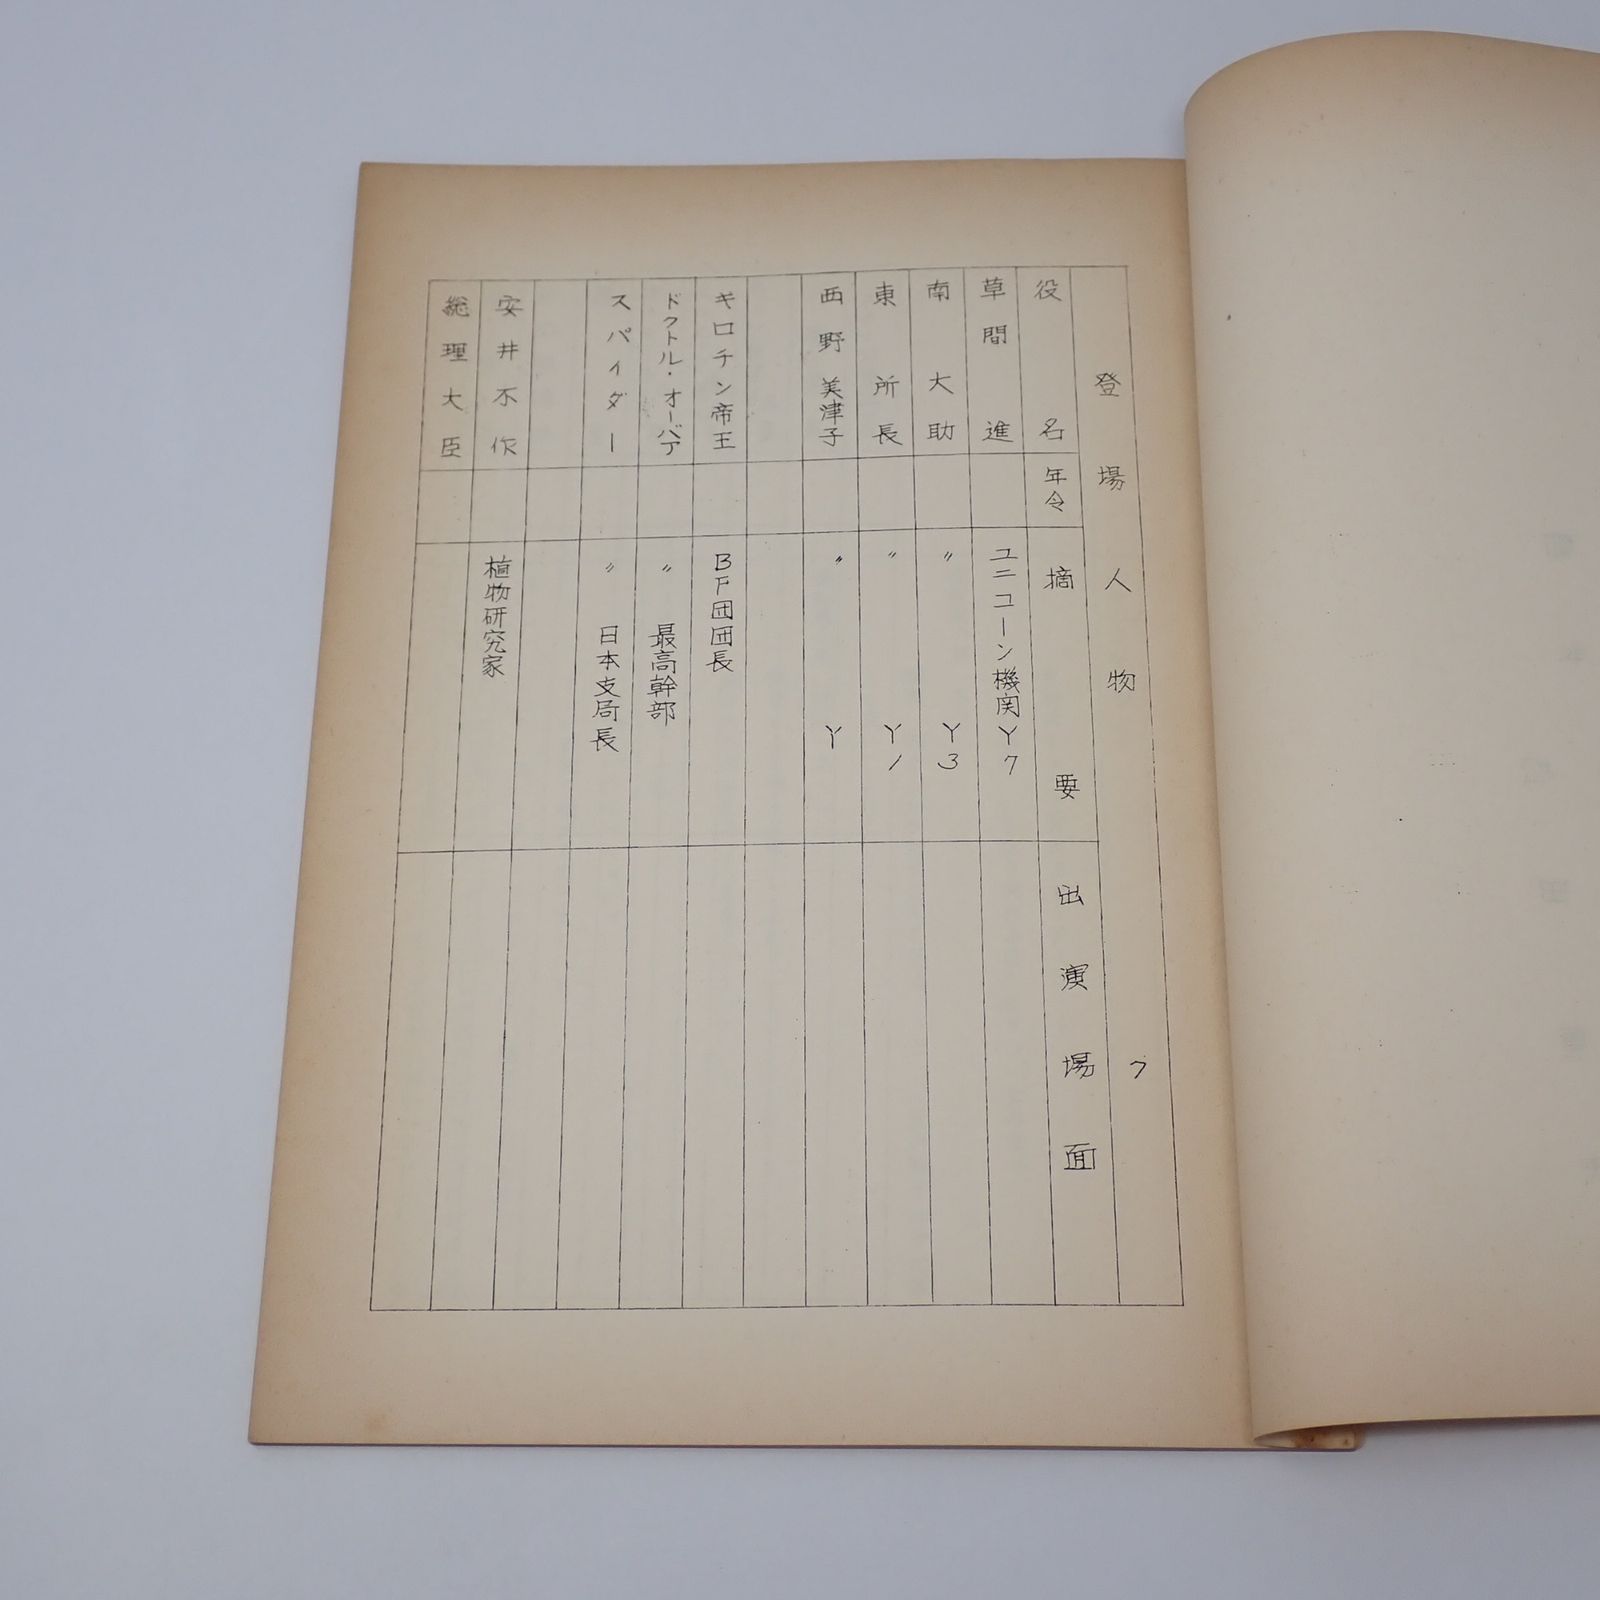 登場人物
7
役名 年令 摘要 出演場面
草間 進 ユニコーン機関Y7
南 大助 〃 Y3
東 所長 〃 Y1
西野 美津子 〃 Y
ギロチン帝王 BF団団長
ドクトル・オーバア 〃 最高幹部
スパイダー 〃 日本支局長
安井不作 植物研究家
総理大臣